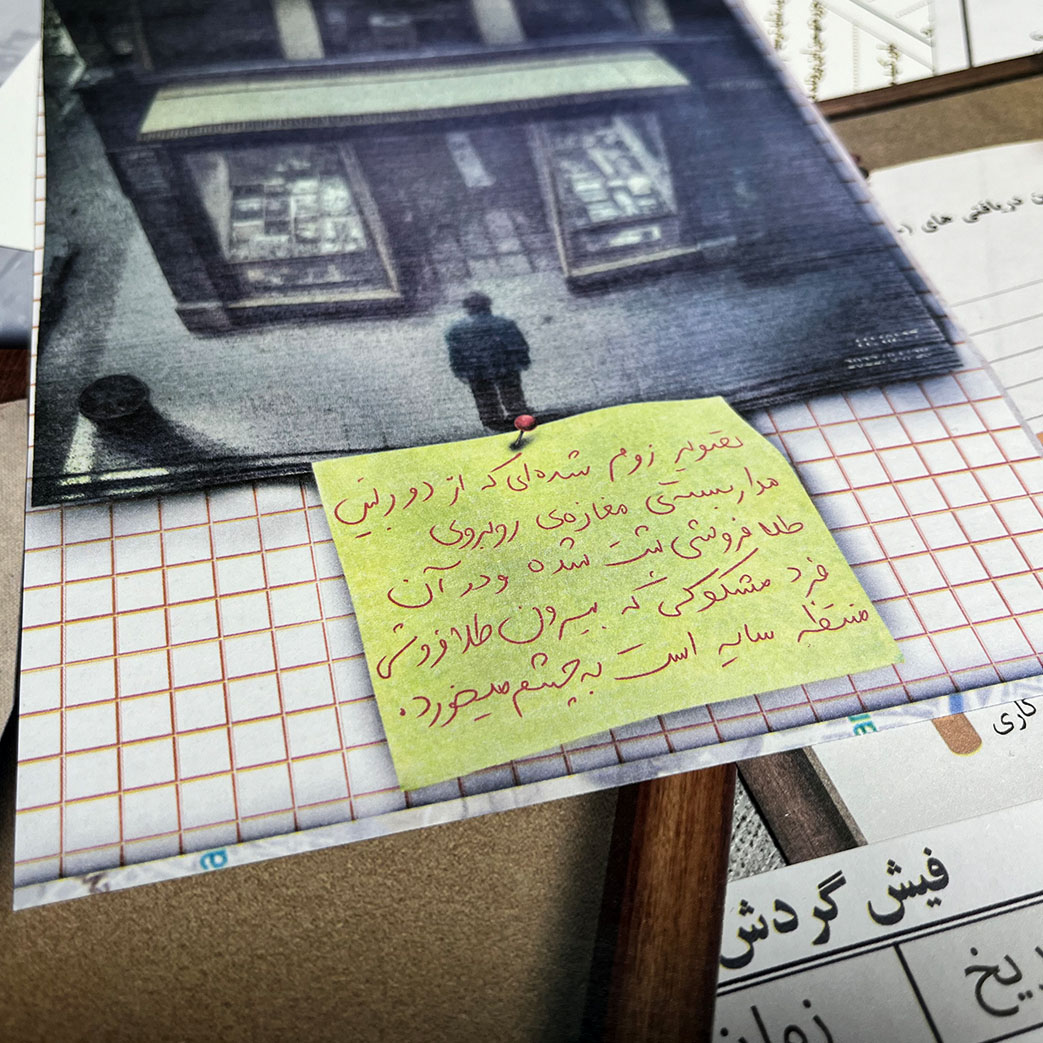 تصویر زوم شده‌ای که از دوربین
مداربسته‌ی مغازه‌ی روبروی
طلا فروشی ثبت شده و در آن
فرد مشکوکی که بیرون طلافروشی
منتظر سایه است به چشم میخورد.
دریافتی های
کاری
فیش گردش
زمان